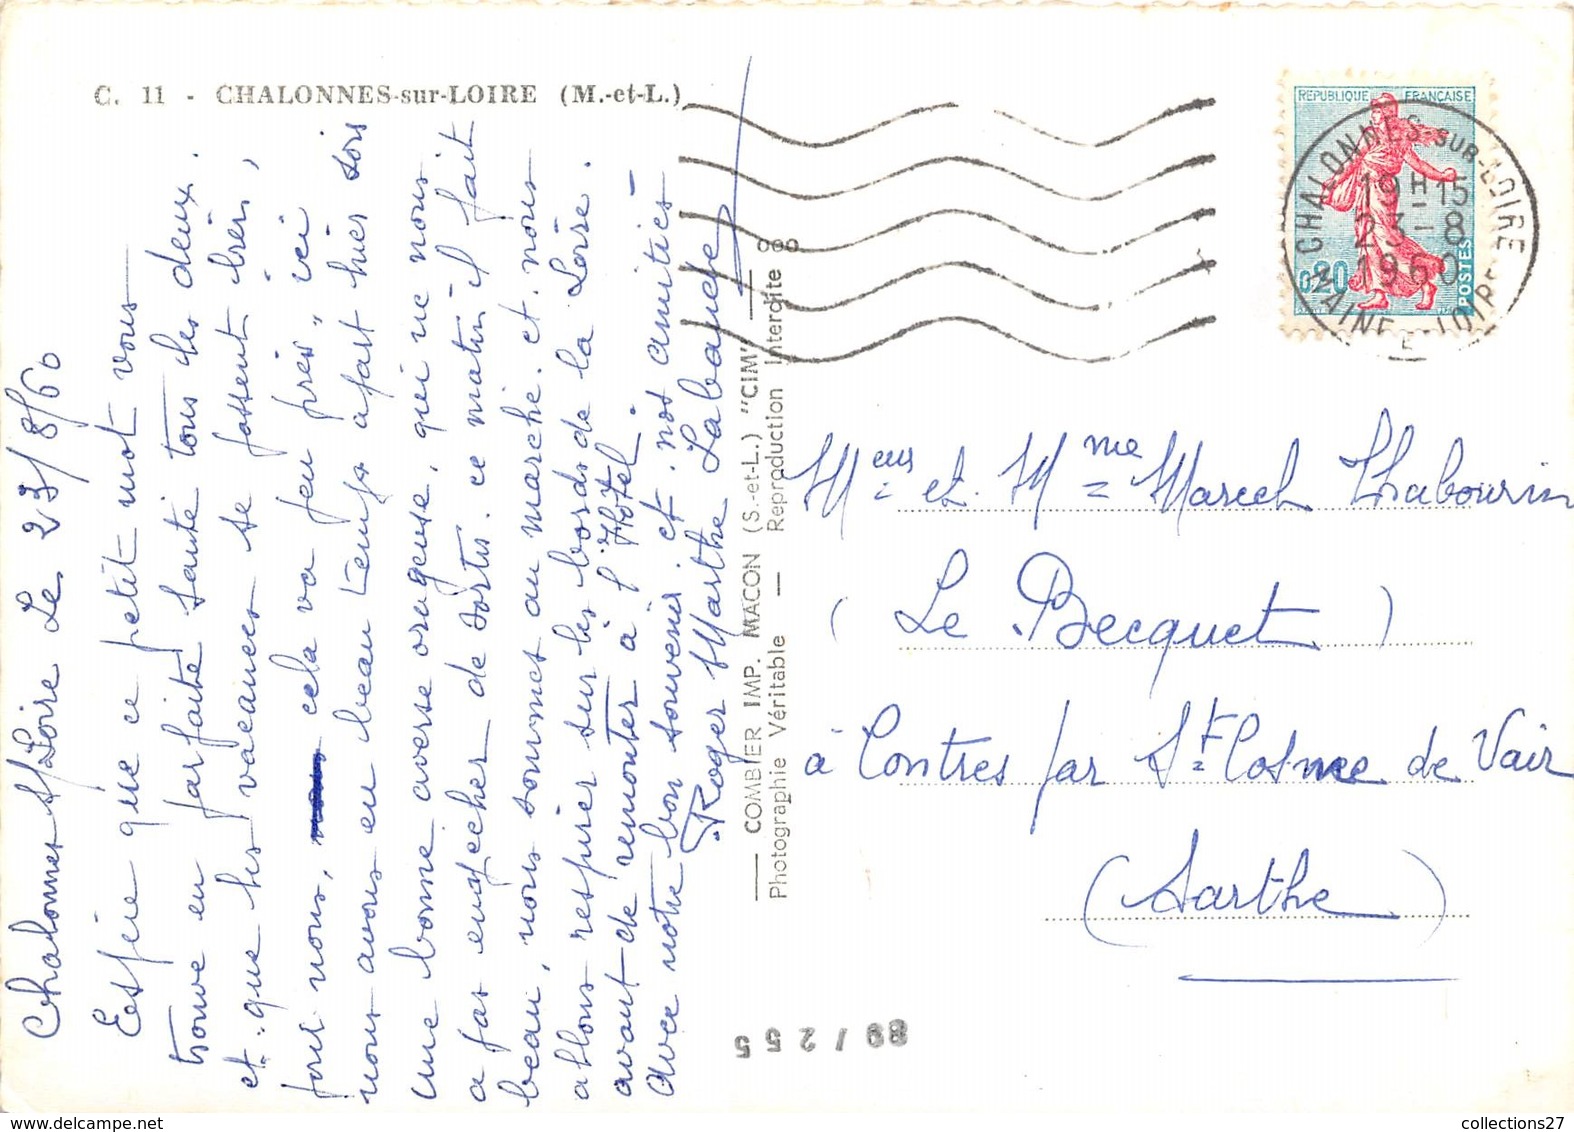 C. 11 - CHALONNES-sur-LOIRE (M.-et-L.)
Chalonnes s/Loire Le 23/8/60
Espère que ce petit mot vous
trouve en parfaite santé tous les deux.
et que les vacances se passent bien,
pour nous, cela va peu près, ici
nous avons eu beau temps à part hier soir
une bonne averse orageuse, qui ne nous
a pas empêcher de sortir. ce matin il fait
beau, nous sommes au marché. et nous
allons respirer sur les bords de la Loire.
avant de remonter à l'Hôtel.
Avec notre bon souvenir et nos amitiés
Roger Marthe Labauche
COMBIER IMP. MACON (S.-et-L.) "CIM"
Photographie Véritable — Reproduction Interdite
REPUBLIQUE FRANÇAISE
0,20
POSTES
CHALONNES-SUR-LOIRE
19H15
23-8
1960
MAINE-ET-LOIRE
Meur et Mme Marcel Chabourin
(Le Becquet)
à Contres par St Cosme de Vair
(Sarthe)
89/255
collections27